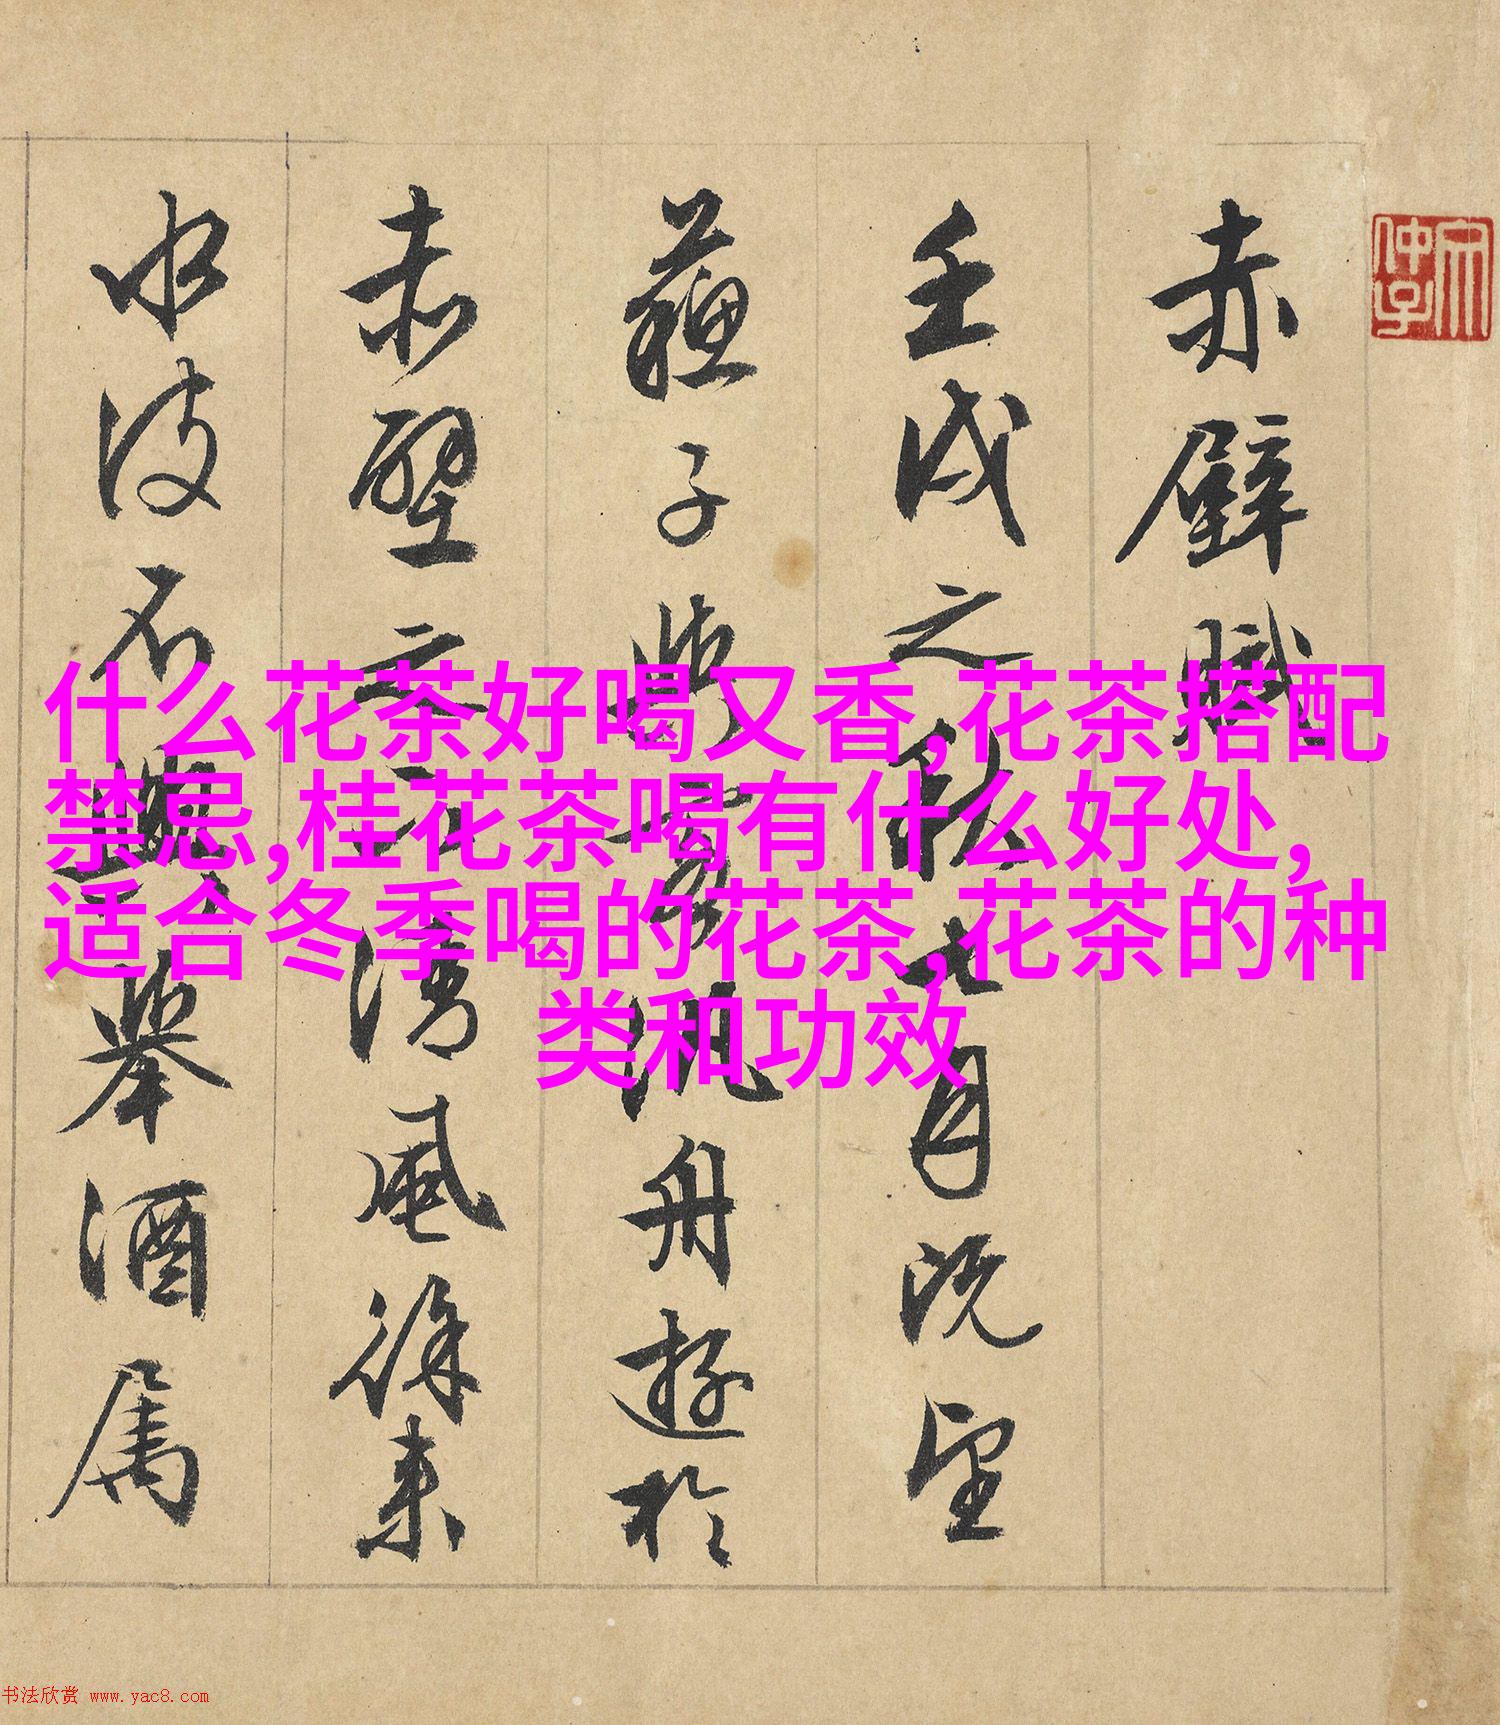 赤壁賦
壬戌之秋七月既望
蘇子與客汎舟遊於
赤壁之下清風徐來
水波不興舉酒屬
什么花茶好喝又香,花茶搭配
禁忌,桂花茶喝有什么好处,
适合冬季喝的花茶,花茶的种
类和功效
书法欣赏 www.yac8.com